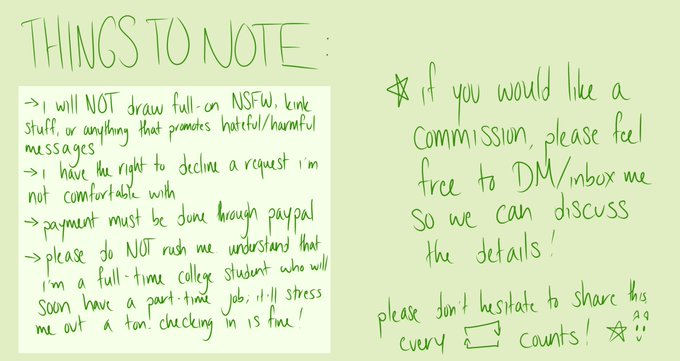 THINGS TO NOTE :
→ I will NOT draw full-on NSFW, kink
stuff, or anything that promotes hateful/harmful
messages
→ I have the right to decline a request i'm
not comfortable with
→ payment must be done through paypal
→ please do NOT rush me. understand that
i'm a full-time college student who will
soon have a part-time job; it'll stress
me out a ton. checking in is fine!
☆ if you would like a
commission, please feel
free to DM/inbox me
so we can discuss
the details!
please don't hesitate to share this,
every counts! ☆